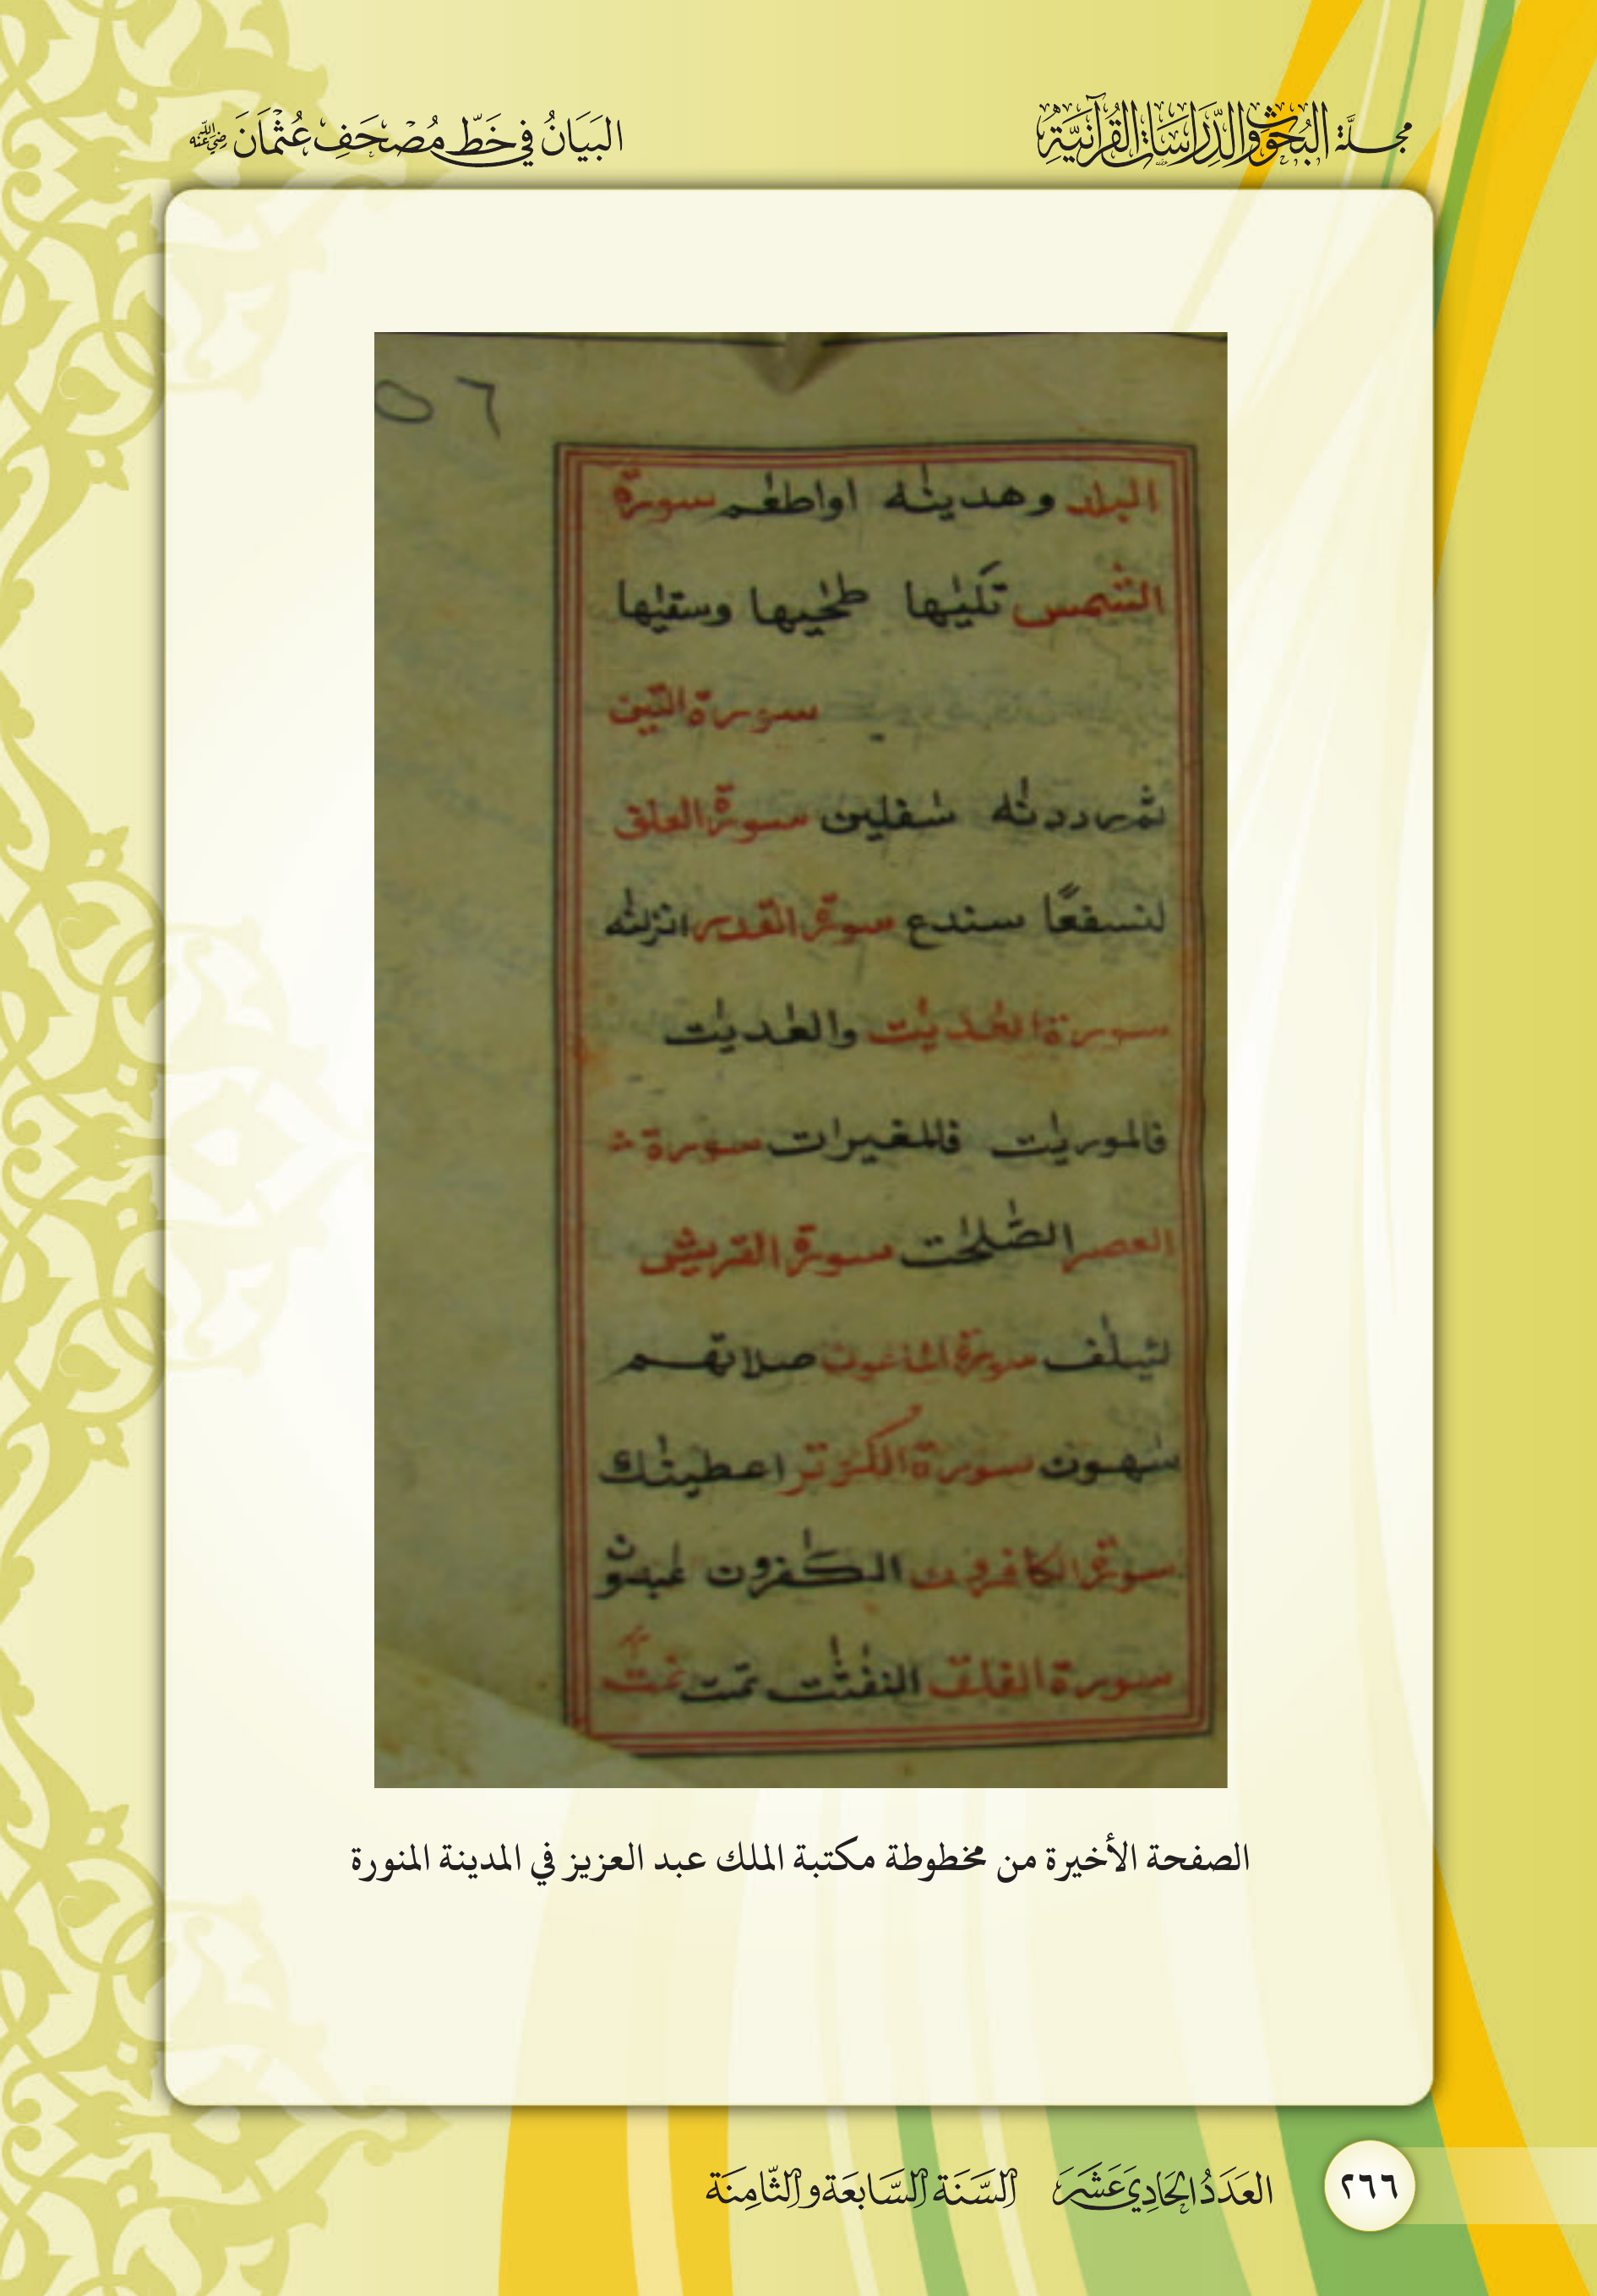 مجلَّة البُحُوثِ وَالدِّرَاسَاتِ القُرْآنِيَّةِ
البَيَانُ فِي خَطِّ مُصْحَفِ عُثْمَانَ رضي الله عنه
٥٦
البلد وهدينٰه اواطعٰم سورة
الشمس تَليٰها طحٰيها وسقيٰها
سورة التين
ثم رددنٰه سٰفلين سورة العلق
لنسفعًا سندع سورة القدر انزلنٰه
سورة العٰديٰت والعٰديٰت
فالموريٰت فالمغيرات سورة
العصر الصّٰلحٰت سورة القريش
لئيلٰف سورة الماعون صلاتهم
سٰهون سورة الكوثر اعطينٰك
سورة الكافرون الكٰفرون عٰبدون
سورة الفلق النفٰثٰت تمت تمت
الصفحة الأخيرة من مخطوطة مكتبة الملك عبد العزيز في المدينة المنورة
٢٦٦
العَدَدُ الحَادِيَ عَشَرَ السَّنَة السَّابعَة والثَّامِنَة